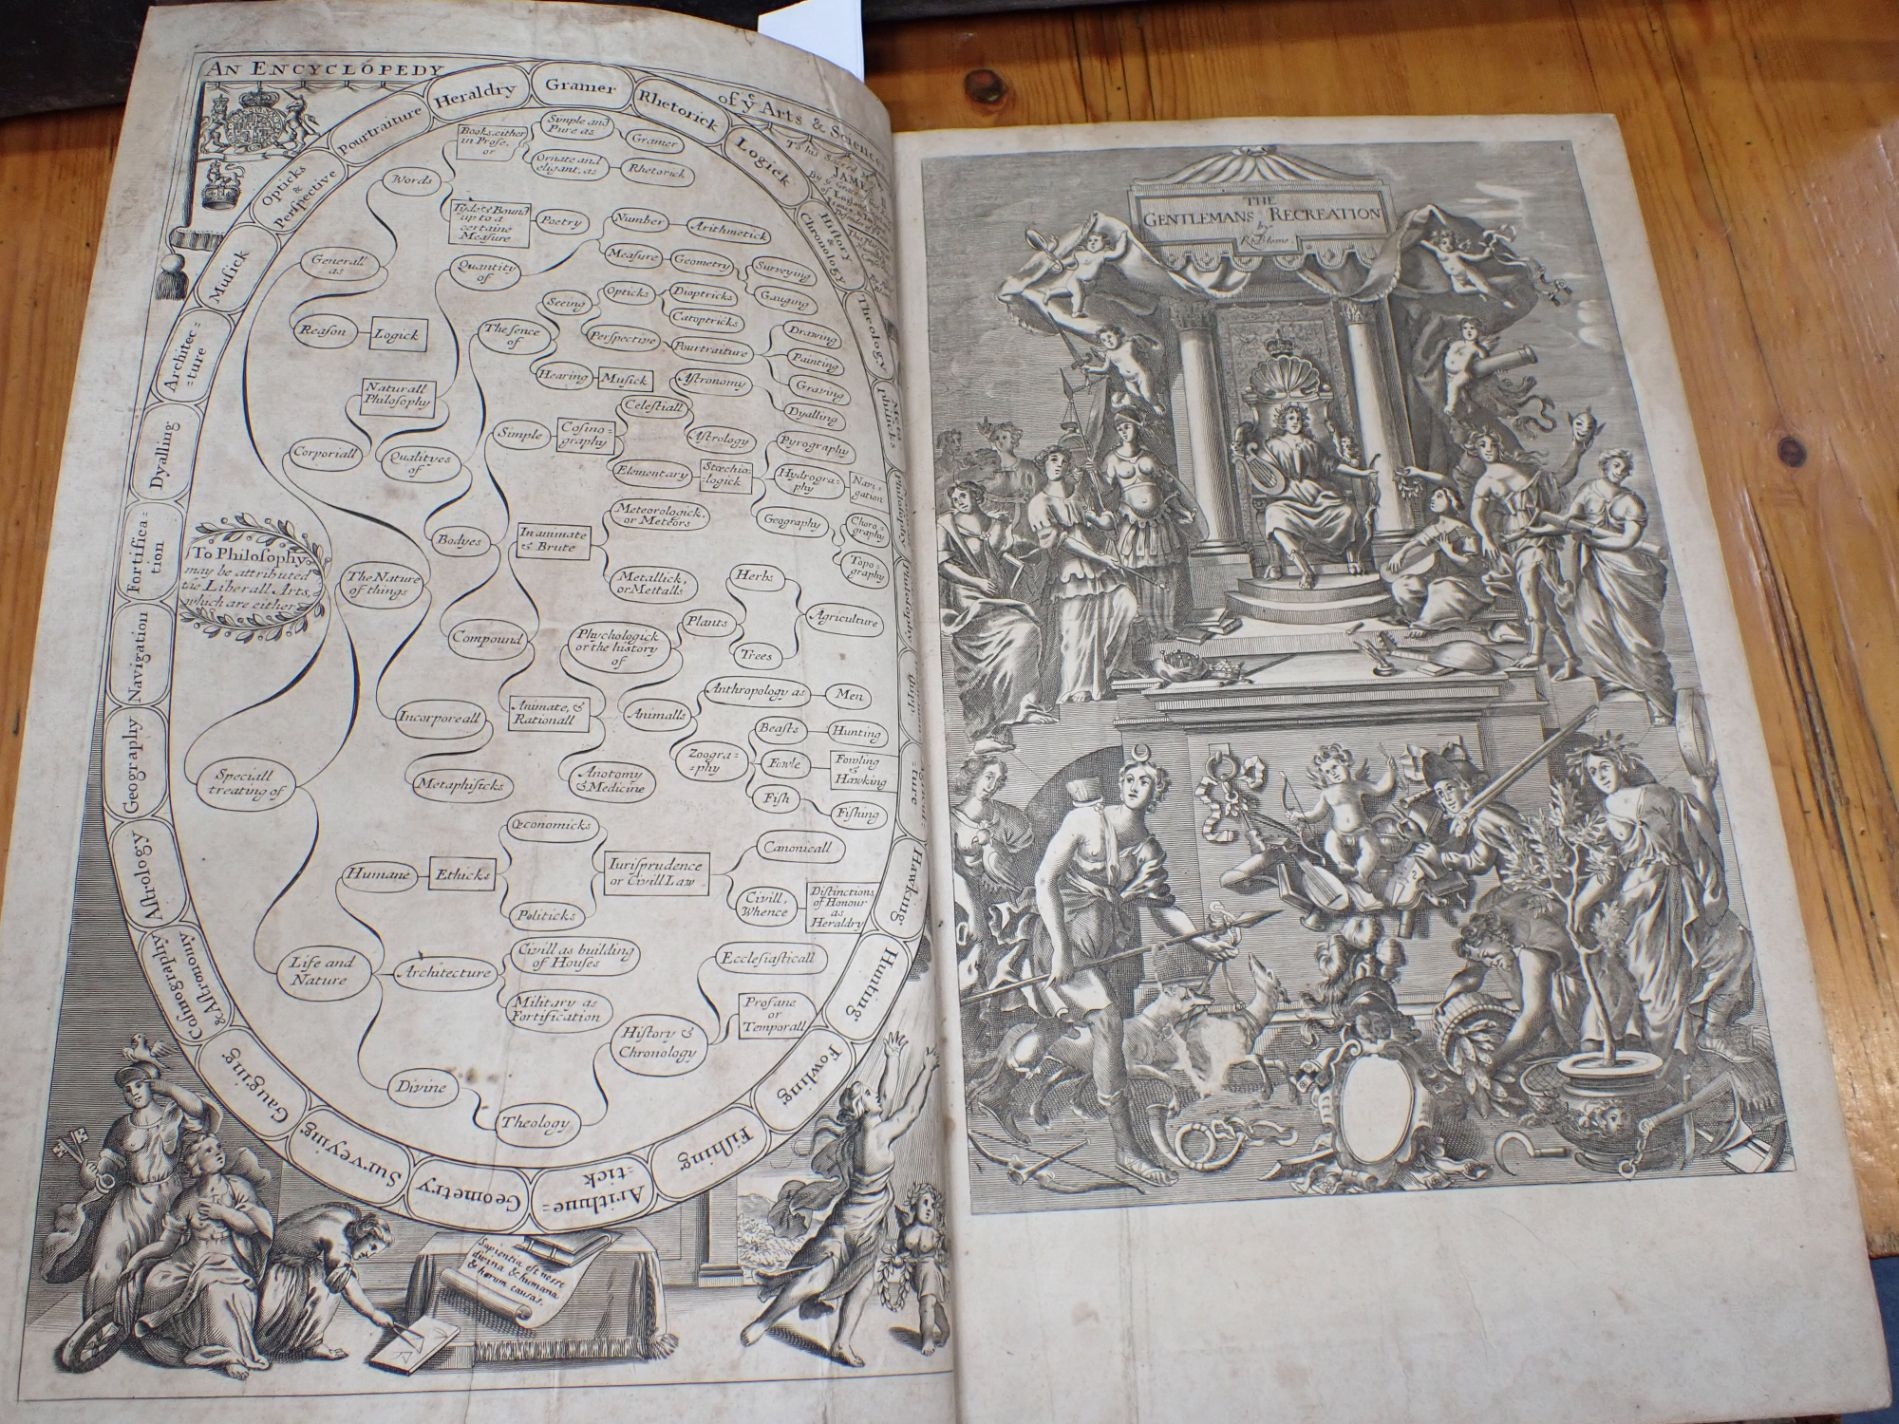 AN ENCYCLOPEDY
of yͤ Arts & Sciences
Gramer
Rhetorick
Logick
History
&
Chronology
Theology
Hawking
Hunting
Fowling
Fiſhing
Arithme=
=tick
Geometry
Surveying
Gauging
Coſmography
& Aſtronomy
Aſtrology
Geography
Navigation
Fortifica=
tion
Dyalling
Architec=
=ture
Muſick
Opticks
&
Perſpective
Pourtraiture
Heraldry
To his
JAMES
To Philoſophy
may be attributed
the Liberall Arts,
which are either
Generall
as
Words
Books either
in Proſe,
or
Simple and
Pure as
Gramer
Ornate and
eligant, as
Rhetorick
Tyde & Bound
up to a
certaine
Meaſure
Poetry
Reaſon
Logick
Speciall
treating of
The Nature
of things
Corporiall
Naturall
Philoſophy
Quantity
of
Number
Arithmetick
Meaſure
Geometry
Surveying
Gauging
Qualityes
of
The ſence
of
Seeing
Opticks
Dioptricks
Catoptricks
Perſpective
Pourtraiture
Drawing
Painting
Graving
Hearing
Muſick
Bodyes
Simple
Coſmo=
graphy
Celeſtiall
Aſtronomy
Dyalling
Aſtrology
Elementary
Stœchio=
logick
Pyrography
Hydrogra=
phy
Navi=
gation
Geography
Choro=
graphy
Topo=
graphy
Compound
Inanimate
& Brute
Meteorologick,
or Meteors
Metallick,
or Mettalls
Animate, &
Rationall
Phychologick
or the history
of
Plants
Herbs
Trees
Agriculture
Animalls
Anthropology as
Men
Zoogra=
=phy
Beaſts
Hunting
Fowle
Fowling
&
Hawking
Fiſh
Fiſhing
Anotomy
& Medicine
Incorporeall
Metaphiſicks
Life and
Nature
Humane
Ethicks
Œconomicks
Politicks
Iuriſprudence
or Civill Law
Canonicall
Civill,
Whence
Diſtinctions
of Honour
as
Heraldry
Architecture
Civill as building
of Houſes
Military as
Fortification
Divine
Theology
History &
Chronology
Eccleſiaſticall
Profane
or
Temporall
Sapientia eſt noſſe
divina & humana
& horum cauſas.
THE
GENTLEMANS RECREATION
by